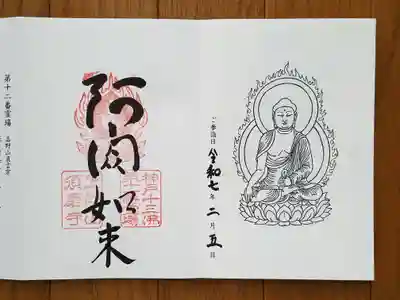 令和七年二月五日
阿閦如来
神戸十三佛
須磨寺
第十二番霊場
高野山真言宗